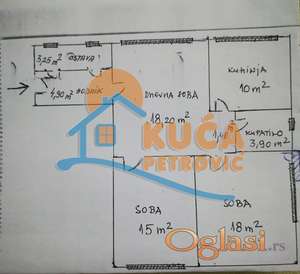 3,25 m²
OSTAVA
4,90 m²
HODNIK
DNEVNA SOBA
18,20 m²
KUHINJA
10 m²
KUPATILO
3,90 m²
KUĆA
PETROVIĆ
SOBA
15 m²
SOBA
18 m²
Oglasi.rs